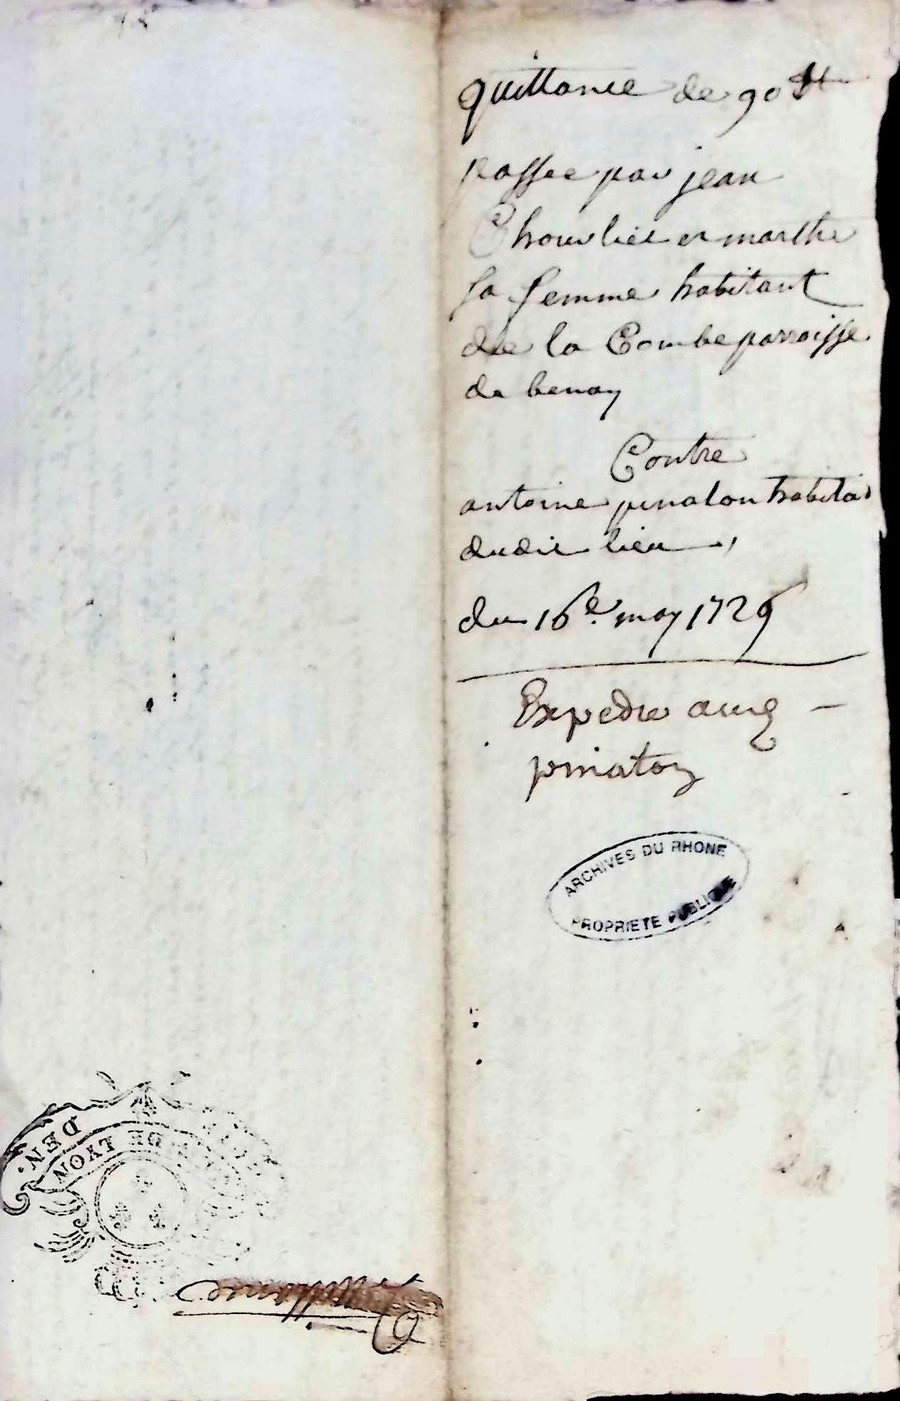 quittance de 90 ₶
passee par jean
Chouvliet et marthe
sa femme habitant
de la Combe parroisse
de benay
Contre
antoine pinaton habitat
dudit lieu
du 16e. may 1726
Expedie aud
pinaton
ARCHIVES DU RHONE
PROPRIETE PUBLIQUE
DEN.
DE LYON